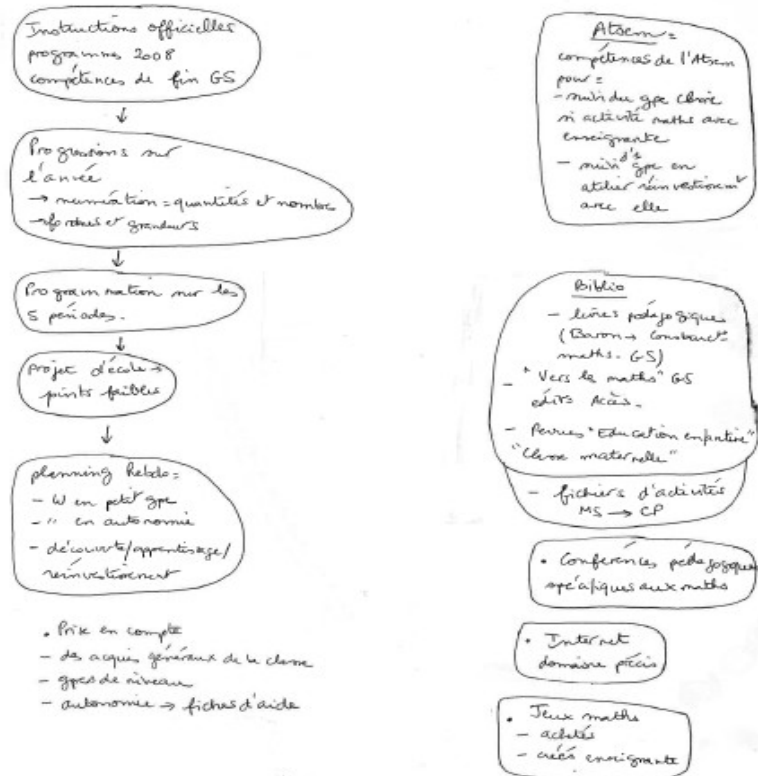 Instructions officielles
programmes 2008
compétences de fin GS
↓
Progressions sur
l'année
→ numération = quantités et nombre
→ formes et grandeurs
↓
Programmation sur les
5 périodes.
↓
projet d'école →
points faibles
↓
planning hebdo =
- W en petit gpe
- " en autonomie
- découverte/apprentissage/
réinvestissement
• Prise en compte
- des acquis généraux de la classe
- gpes de niveau
- autonomie → fiches d'aide
Atsem =
compétences de l'Atsem
pour =
- suivi du gpe classe
si activité maths avec
enseignante
- suivi d'1 gpe en
atelier réinvestissemt
avec elle
Biblio
- livres pédagogiques
(Baron → Construct°
maths. GS)
- "Vers les maths" GS
édits Accès.
- Revues "Education enfantine"
"Classe maternelle"
- fichiers d'activités
MS → CP
• Conférences pédagogiques
spécifiques aux maths
• Internet
domaine précis
• Jeux maths
- achetés
- créés enseignante